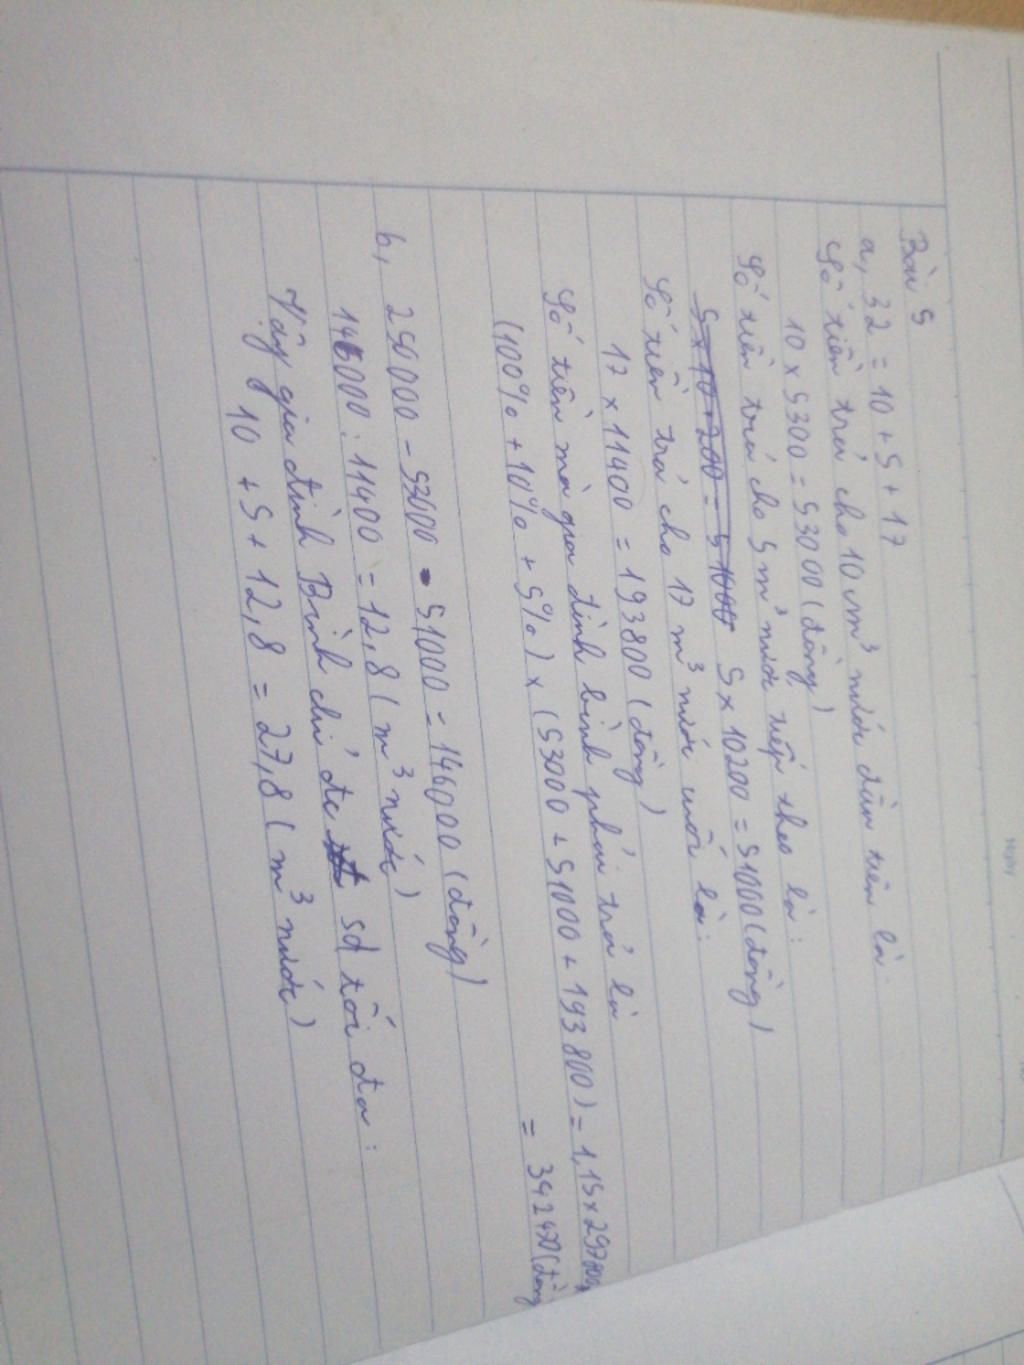 Bài 5
a, 32 = 10 + 5 + 17
Số tiền trả cho 10 m³ nước đầu tiên là:
10 x 5300 = 53000 (đồng)
Số tiền trả cho 5 m³ nước tiếp theo là:
5 x 10200 = 51000 (đồng)
Số tiền trả cho 17 m³ nước cuối là:
17 x 11400 = 193800 (đồng)
Số tiền mà gia đình bình phải trả là
(100% + 10% + 5%) x (53000 + 51000 + 193800) = 1,15 x 297800
= 342470 (đồng
b, 250000 - 53000 - 51000 = 146000 (đồng)
146000 : 11400 = 12,8 (m³ nước)
Vậy gia đình Bình chỉ đc sd tối đa:
10 + 5 + 12,8 = 27,8 (m³ nước)